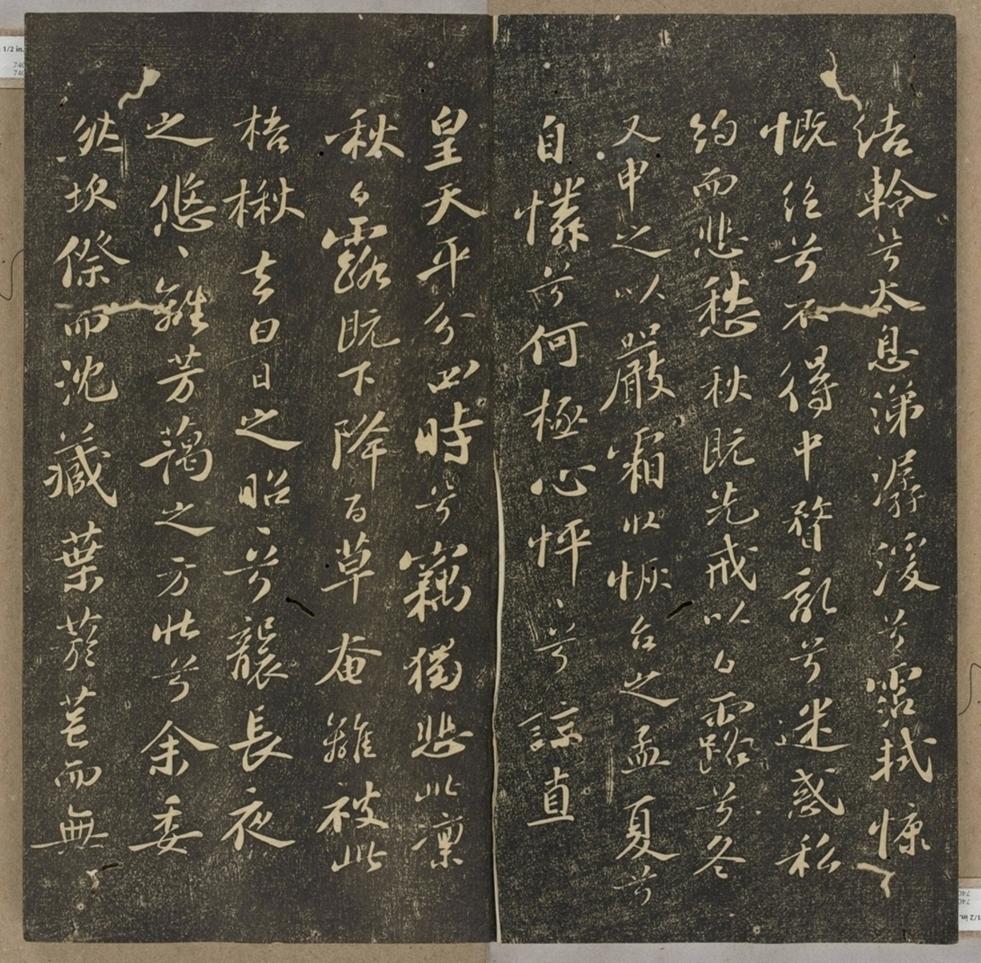 結軨兮太息涕潺湲兮霑軾慷
慨絕兮不得中瞀亂兮迷惑私
約而悲愁秋既先戒以白露兮冬
又申之以嚴霜收恢台之孟夏兮
自憐兮何極心怦、兮諒直
皇天平分四時兮竊獨悲此稟
秋白露既下降百草奄離披此
梧楸去白日之昭、兮襲長夜
之悠、離芳藹之方壯兮余委
然坎傺而沈藏葉菸芑而無